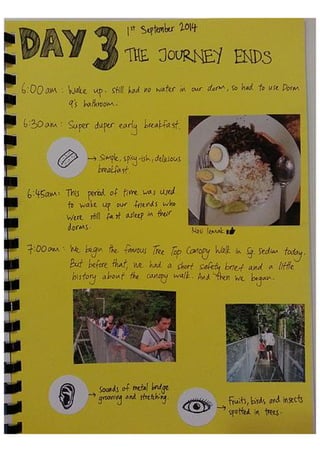 1st September 2014
DAY 3
THE JOURNEY ENDS
6:00am: Wake up. Still had no water in our dorm, so had to use Dorm
9's bathroom.
6:30am: Super duper early breakfast.
→ Simple, spicy-ish, delicious
breakfast.
Nasi lemak
6:45am: This period of time was used
to wake up our friends who
were still fast asleep in their
dorms.
7:00am: We began the famous Tree Top Canopy Walk in Sg. Sedim today.
But before that, we had a short safety brief and a little
history about the canopy walk. And then we began.
→ Sounds of metal bridge
groaning and stretching.
→ Fruits, birds and insects
spotted in trees.